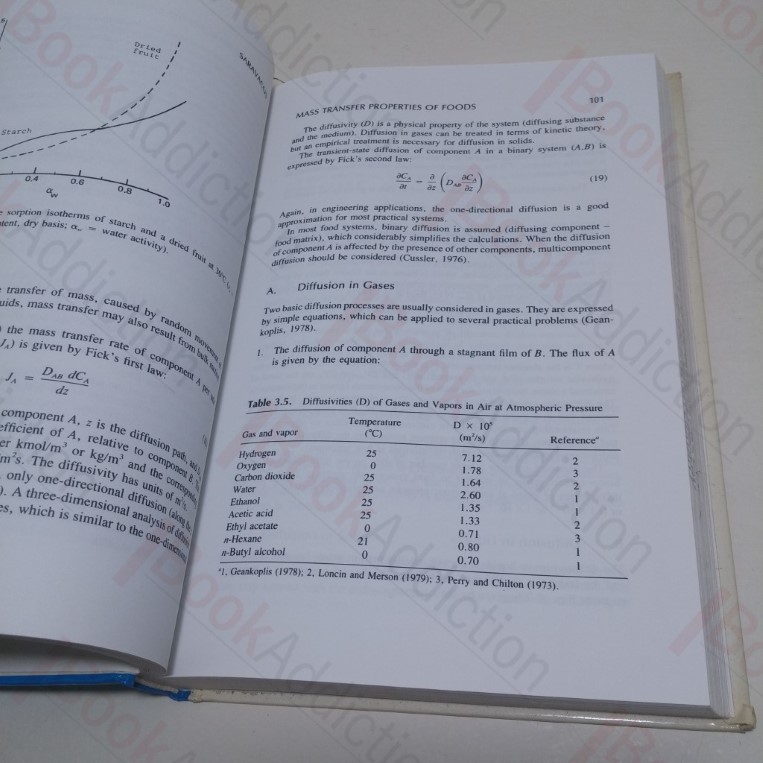 Dried
fruit
Starch
0.4 0.6 0.8 1.0
a_w
sorption isotherms of starch and a dried fruit at
dry basis; a_w = water activity).
transfer of mass, caused by random
mass transfer may also result from bulk
the mass transfer rate of component A per
J_A) is given by Fick's first law:
J_A = D_AB dC_A / dz
component A, z is the diffusion path, and
of A, relative to component B.
kmol/m³ or kg/m³ and the
m²s. The diffusivity has units of m²/s.
only one-directional diffusion (along the
). A three-dimensional analysis of
which is similar to the
MASS TRANSFER PROPERTIES OF FOODS 101
The diffusivity (D) is a physical property of the system (diffusing substance
and the medium). Diffusion in gases can be treated in terms of kinetic theory,
but an empirical treatment is necessary for diffusion in solids.
The transient-state diffusion of component A in a binary system (A,B) is
expressed by Fick's second law:
∂C_A/∂t = ∂/∂z (D_AB ∂C_A/∂z) (19)
Again, in engineering applications, the one-directional diffusion is a good
approximation for most practical systems.
In most food systems, binary diffusion is assumed (diffusing component –
food matrix), which considerably simplifies the calculations. When the diffusion
of component A is affected by the presence of other components, multicomponent
diffusion should be considered (Cussler, 1976).
A. Diffusion in Gases
Two basic diffusion processes are usually considered in gases. They are expressed
by simple equations, which can be applied to several practical problems (Gean-
koplis, 1978).
1. The diffusion of component A through a stagnant film of B. The flux of A
is given by the equation:
Table 3.5. Diffusivities (D) of Gases and Vapors in Air at Atmospheric Pressure
Gas and vapor Temperature (°C) D × 10⁵ (m²/s) Referenceᵃ
Hydrogen 25 7.12 2
Oxygen 0 1.78 3
Carbon dioxide 25 1.64 2
Water 25 2.60 1
Ethanol 25 1.35 1
Acetic acid 25 1.33 2
Ethyl acetate 0 0.71 3
n-Hexane 21 0.80 1
n-Butyl alcohol 0 0.70 1
ᵃ1, Geankoplis (1978); 2, Loncin and Merson (1979); 3, Perry and Chilton (1973).
BookAddiction